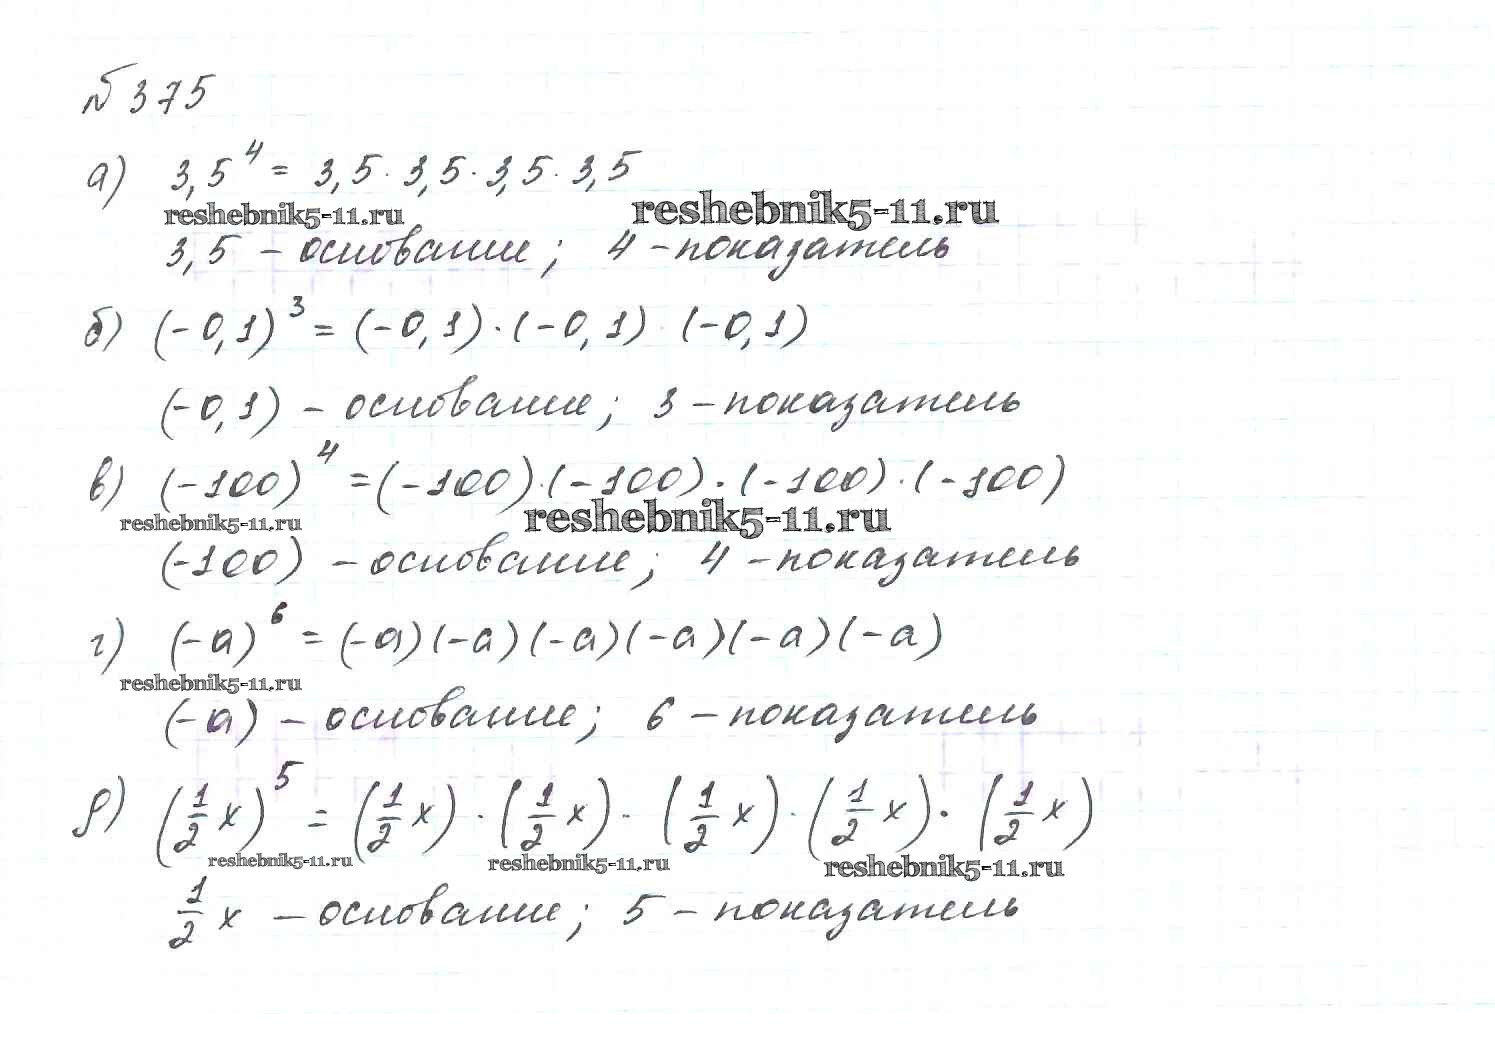 № 375
а) 3,5⁴ = 3,5 · 3,5 · 3,5 · 3,5
reshebnik5-11.ru reshebnik5-11.ru
3,5 – основание; 4 – показатель
б) (-0,1)³ = (-0,1) · (-0,1) · (-0,1)
(-0,1) – основание; 3 – показатель
в) (-100)⁴ = (-100) · (-100) · (-100) · (-100)
reshebnik5-11.ru reshebnik5-11.ru
(-100) – основание; 4 – показатель
г) (-a)⁶ = (-a)(-a)(-a)(-a)(-a)(-a)
reshebnik5-11.ru
(-a) – основание; 6 – показатель
д) (1/2 x)⁵ = (1/2 x) · (1/2 x) · (1/2 x) · (1/2 x) · (1/2 x)
reshebnik5-11.ru reshebnik5-11.ru reshebnik5-11.ru
1/2 x – основание; 5 – показатель